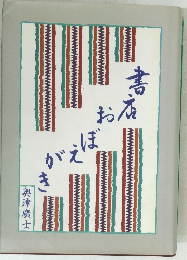 書店
おぼえ
がき
奥津廣士